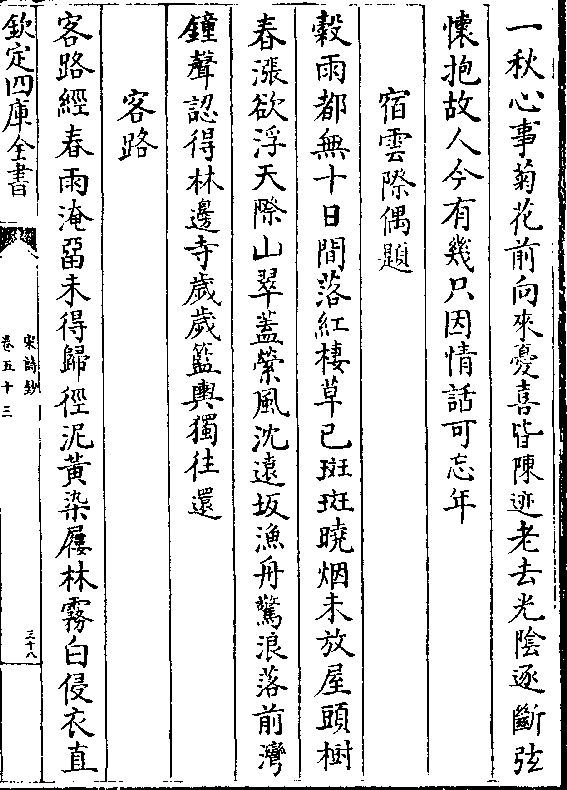 一秋心事菊花前向來憂喜皆陳迹老去光陰逐斷弦
懷抱故人今有幾只因情話可忘年
宿雲際偶題
穀雨都無十日間落紅棲草已斑斑曉烟未放屋頭樹
春漲欲浮天際山翠蓋縈風沈遠坂漁舟驚浪落前灣
鐘聲認得林邊寺歲歲籃輿獨往還
客路
客路經春雨淹留未得歸徑泥黃染屨林霧白侵衣直
欽定四庫全書
宋詩鈔
卷五十三
三十八